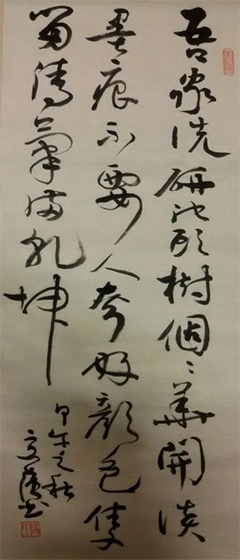 吾家洗研池頭樹個〻華開淡
墨痕不要人夸好顏色隻
留清氣滿乾坤
甲午之秋
書